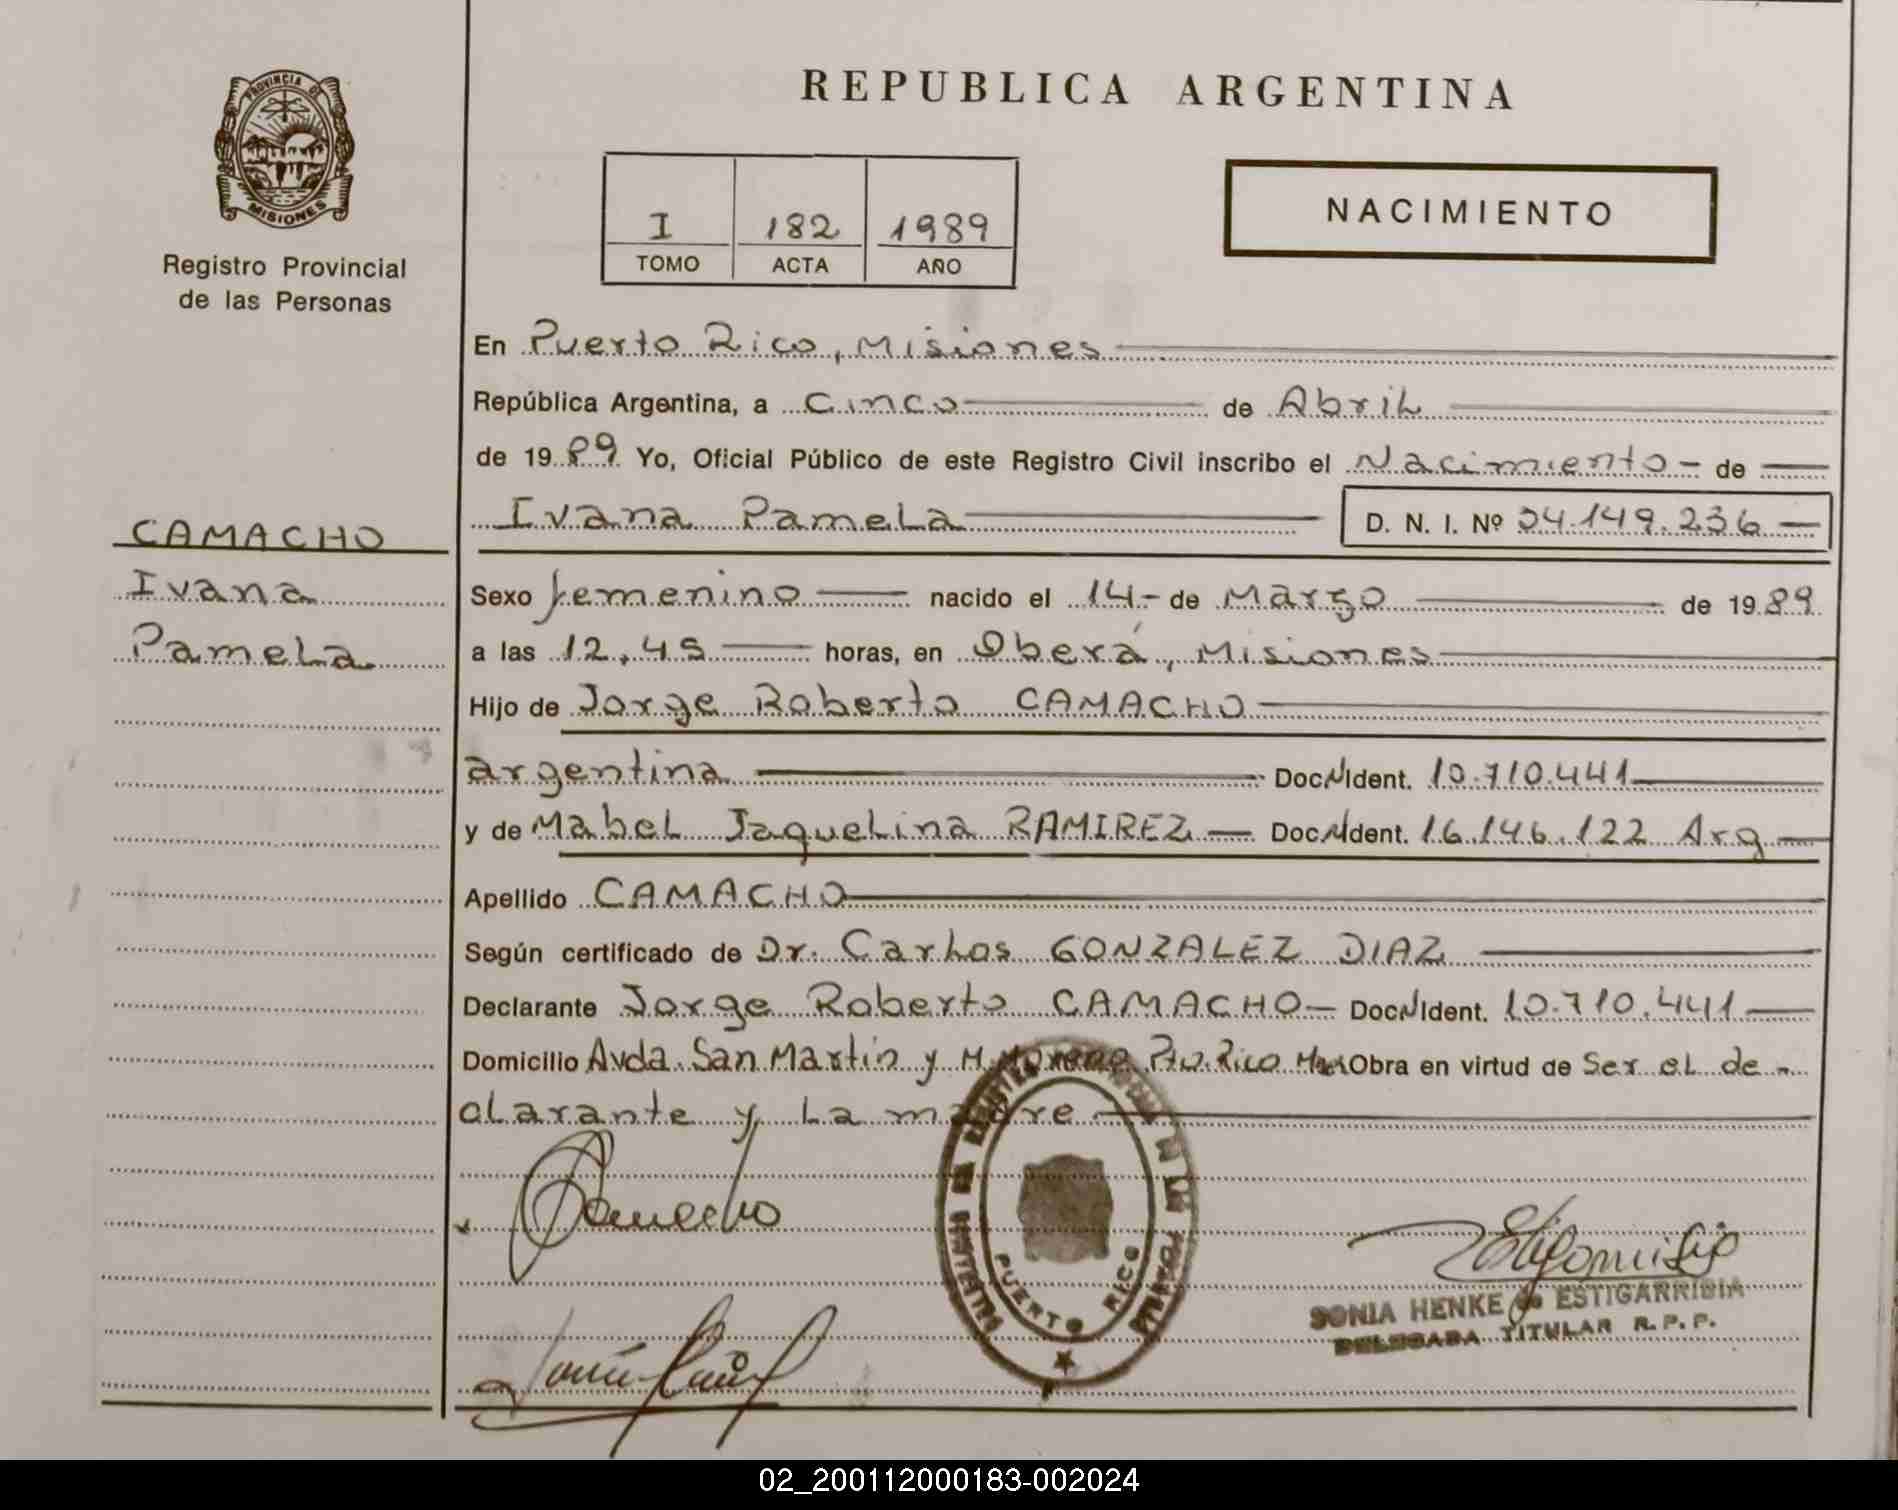 PROVINCIA DE
MISIONES
Registro Provincial
de las Personas
REPUBLICA ARGENTINA
I 182 1989
TOMO ACTA AÑO
NACIMIENTO
En Puerto Rico, Misiones
República Argentina, a cinco de Abril
de 1989 Yo, Oficial Público de este Registro Civil inscribo el Nacimiento - de
Ivana Pamela D. N. I. Nº 34.149.236
CAMACHO
Ivana
Pamela
Sexo femenino nacido el 14 - de Marzo de 1989
a las 12,45 horas, en Oberá, Misiones
Hijo de Jorge Roberto CAMACHO
argentina Doc.N.Ident. 10.710.441
y de Mabel Jaquelina RAMIREZ Doc.N.Ident. 16.146.122 Arg
Apellido CAMACHO
Según certificado de Dr. Carlos GONZALEZ DIAZ
Declarante Jorge Roberto CAMACHO Doc.N.Ident. 10.710.441
Domicilio Avda. San Martin y M. Moreno Pto. Rico Mnes Obra en virtud de Ser el de -
clarante y La madre
Camacho
PUERTO RICO
SONIA HENKE de ESTIGARRIBIA
DELEGADA TITULAR R. P. P.
02_200112000183-002024